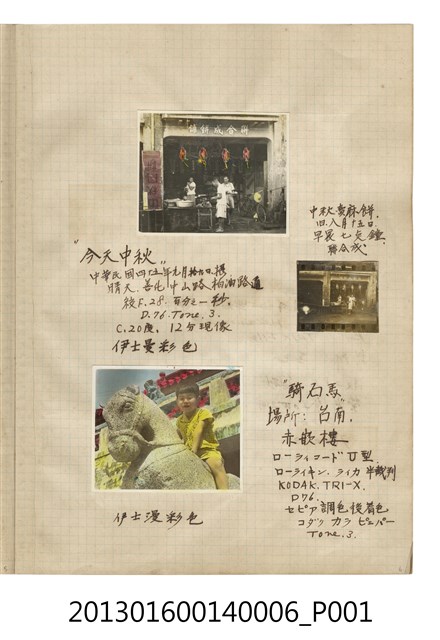 中秋賣麻餅.
旧.八月十五日.
早晨七点鐘.
聯合成.
"今天中秋"
中華民國四十五年九月拾九日.攝
晴天.善化中山路柏油路通
後F.28.百分之一秒.
D.76.Tone.3.
C.20度,12分現像
伊士曼彩色
"騎石馬"
場所:台南.
赤嵌樓
ローライコード 型
ローライキン.ライカ半裁判
KODAK.TRI-X.
D76.
セピア調色後着色
コダックカラ
Tone.3.
伊士漫彩色
201301600140006_P001